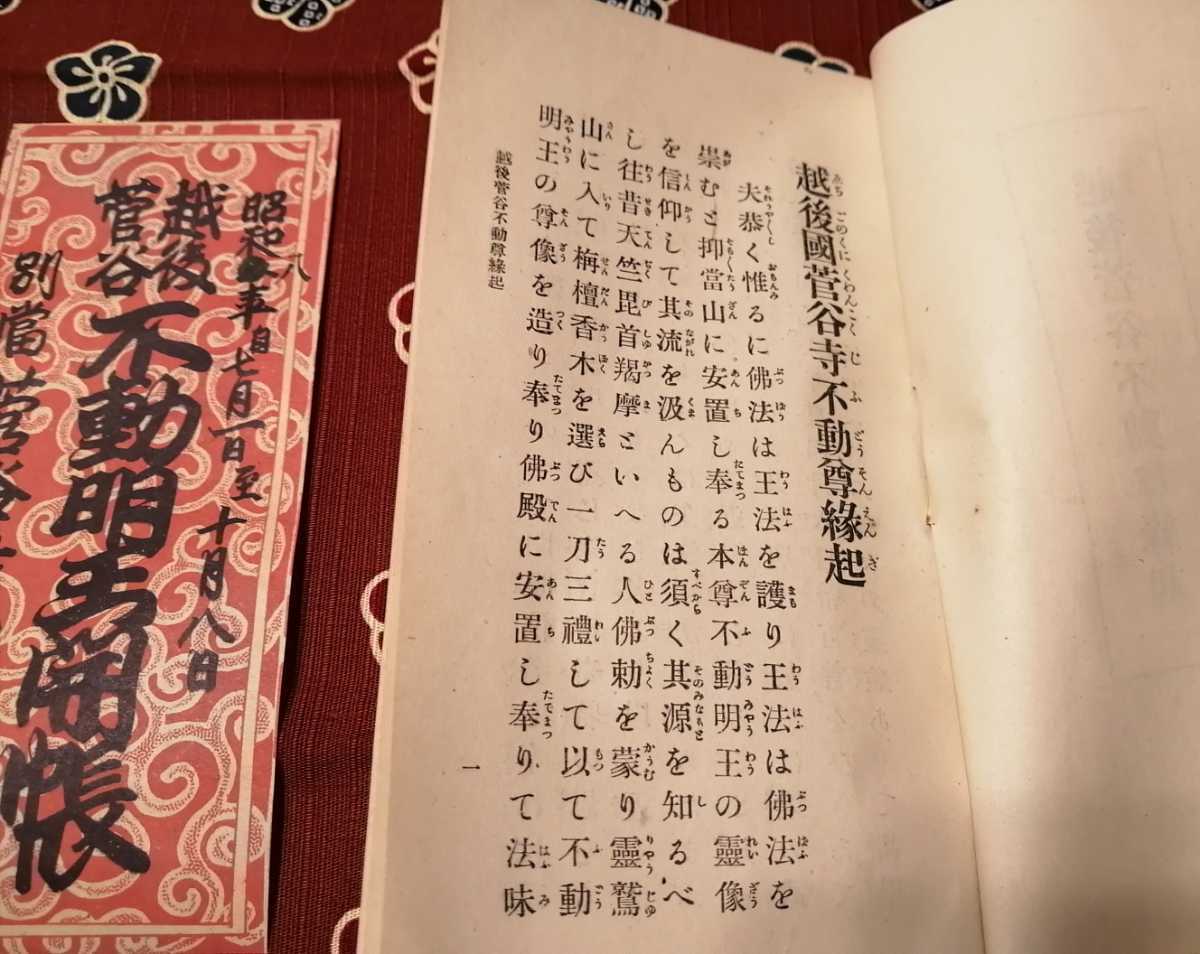 越後國菅谷寺不動尊緣起
夫恭く惟るに佛法は王法を護り王法は佛法を
崇むと抑當山に安置し奉る本尊不動明王の靈像
を信仰して其流を汲んものは須く其源を知るべ
し往昔天竺毘首羯摩といへる人佛勅を蒙り靈鷲
山に入て栴檀香木を選び一刀三禮して以て不動
明王の尊像を造り奉り佛殿に安置し奉りて法味
越後菅谷不動尊緣起
一
昭和八年自七月一日至十月八日
越後
菅谷
不動明王開帳
別當菅谷